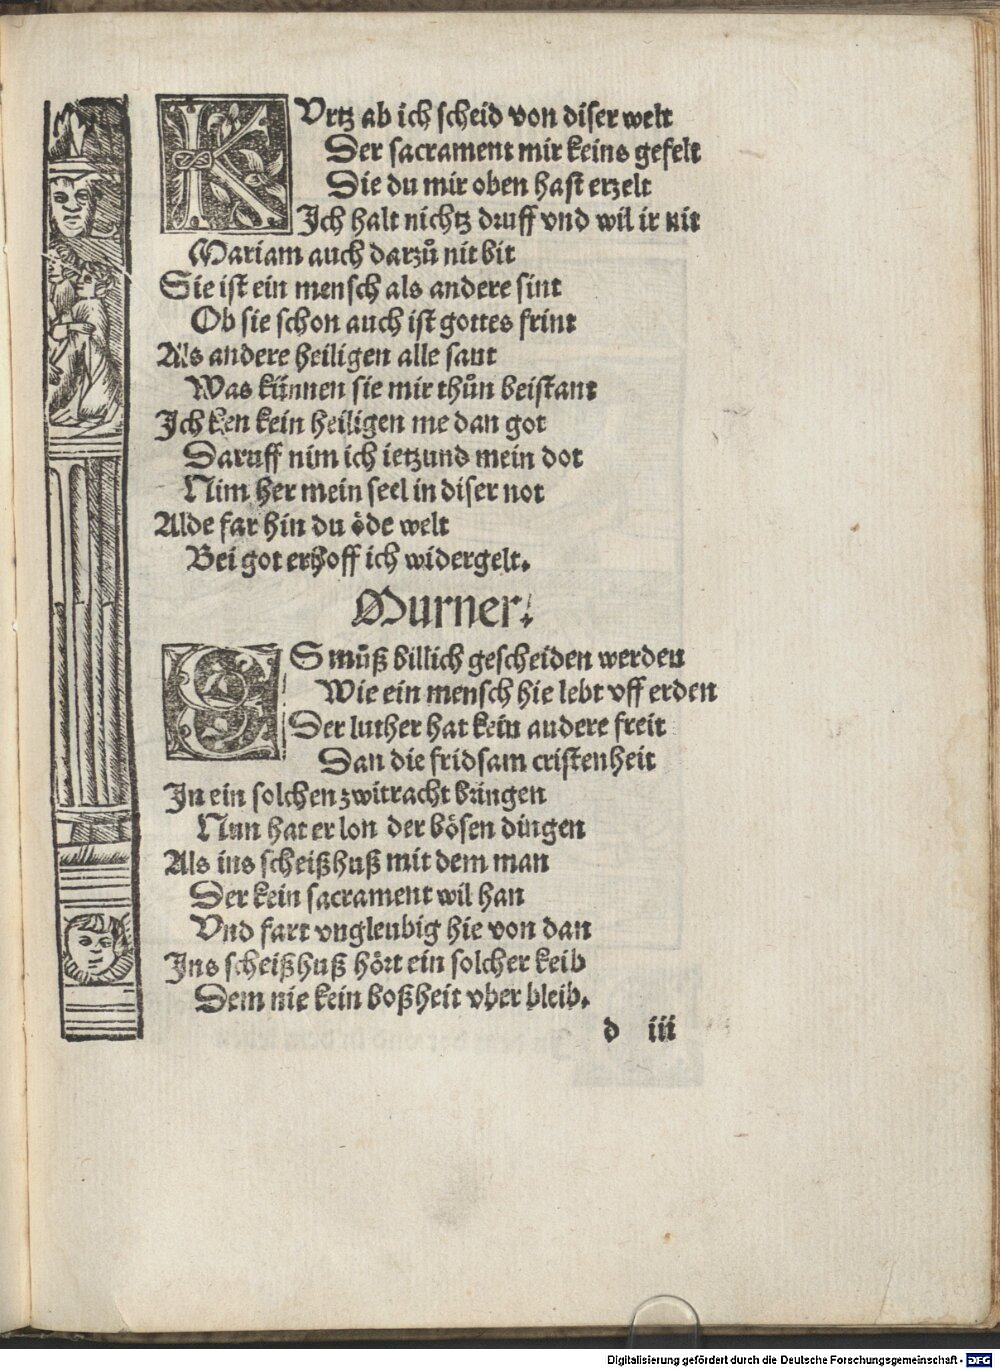 KVrtz ab ich scheid von diser welt
Der sacrament mir keins gefelt
Die du mir oben hast erzelt
Jch halt nichtz druff vnd wil ir nit
Mariam auch darzů nit bit
Sie ist ein mensch als andere sint
Ob sie schon auch ist gottes frint
Als andere heiligen alle sant
Was künnen sie mir thůn beistant
Jch ken kein heiligen me dan got
Daruff nim ich ietzund mein dot
Nim her mein seel in diser not
Alde far hin du öde welt
Bei got ertzhoff ich widergelt.
Murner.
ES můß billich gescheiden werden
Wie ein mensch hie lebt vff erden
Der luther hat kein andere freit
Dan die fridsam cristenheit
Jn ein solchen zwitracht bringen
Nun hat er lon der bösen dingen
Als ins scheißhuß mit dem man
Der kein sacrament wil han
Vnd fart vngleubig hie von dan
Jns scheißhuß hört ein solcher keib
Dem nie kein boßheit vber bleib.
d iii
Digitalisierung gefördert durch die Deutsche Forschungsgemeinschaft - DFG